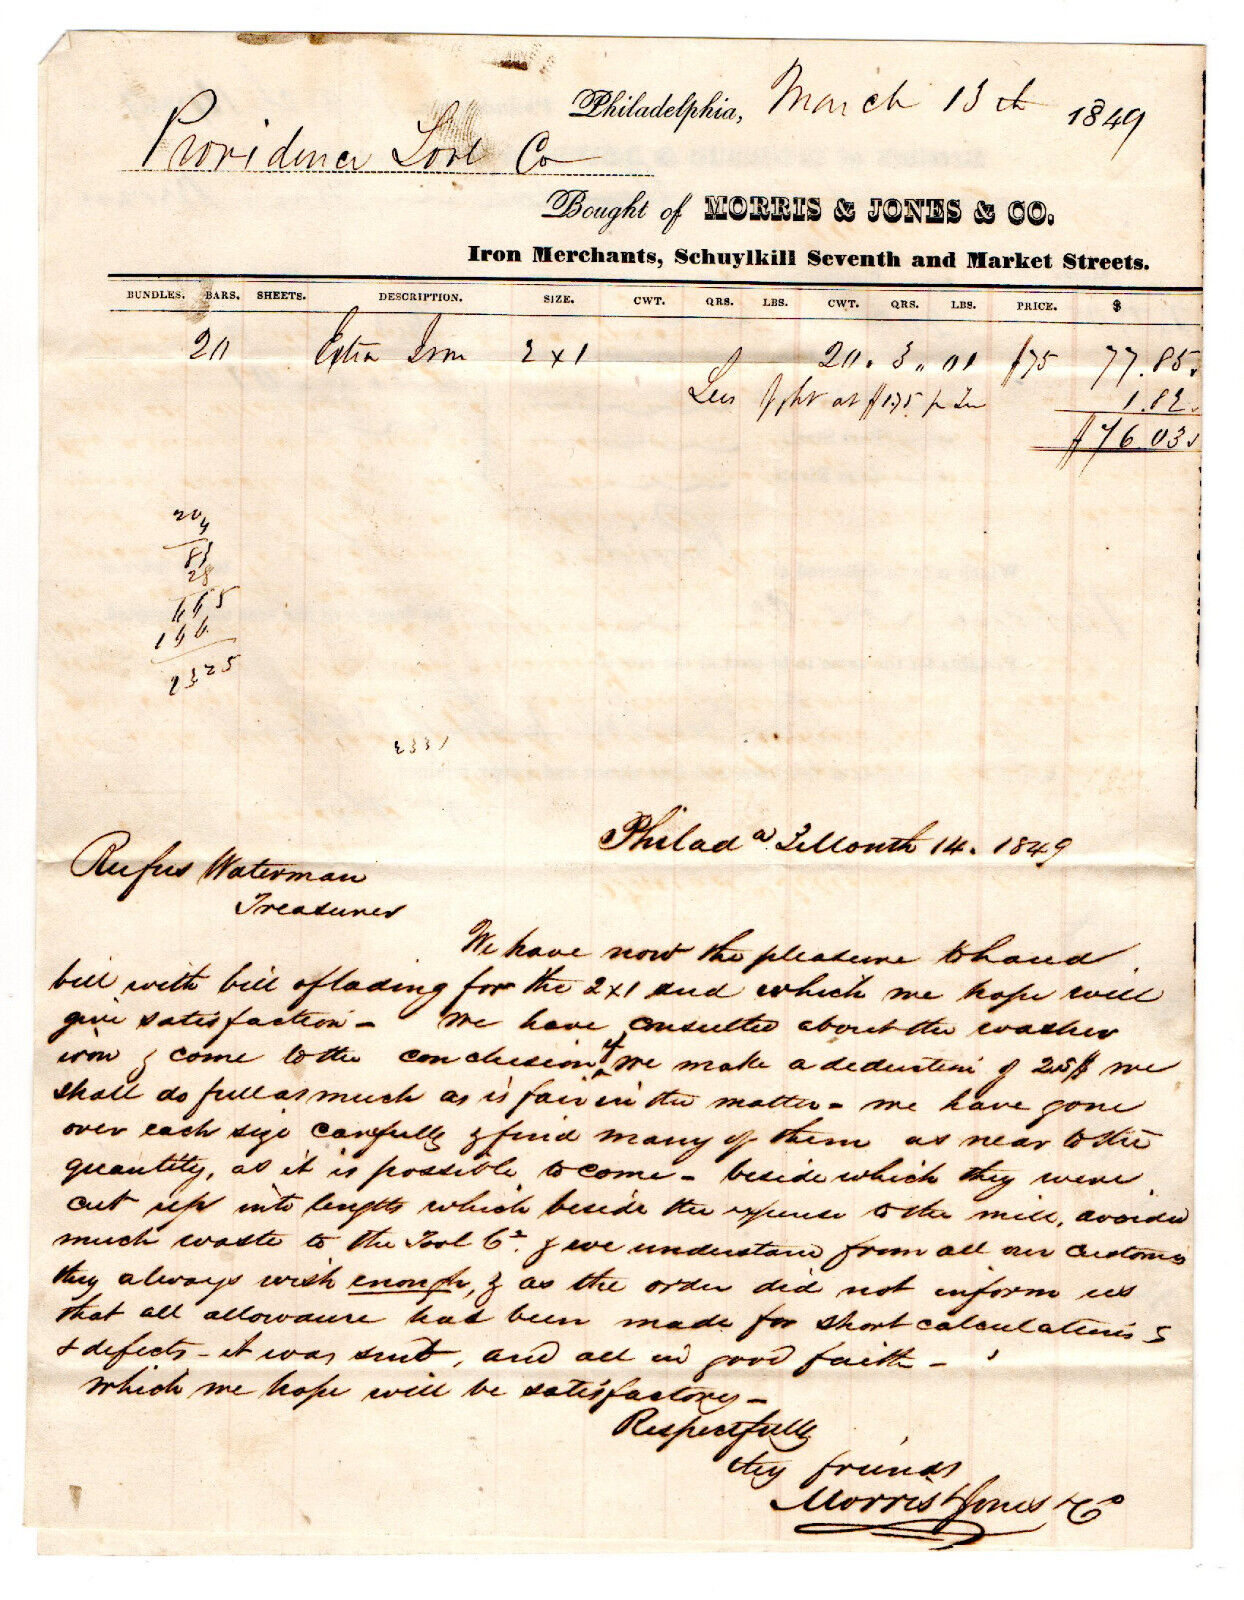 Philadelphia, March 13th 1849
Providence Tool Co
Bought of MORRIS & JONES & CO.
Iron Merchants, Schuylkill Seventh and Market Streets.
BUNDLES. BARS. SHEETS. DESCRIPTION. SIZE. CWT. QRS. LBS. CWT. QRS. LBS. PRICE. $
20 Extra Iron 2 x 1 20. 3,, 01 $75 77.85.
Less fght at $1.75 pr Ton 1.82.
$76.03
20
4
83
28
665
166
2325
2331
Philada 3 Month 14. 1849
Rufus Waterman
Treasurer
We have now the pleasure to hand
bill with bill of lading for the 2 x 1 and which we hope will
give satisfaction - we have consulted about the washer
iron & come to the conclusion if we make a deduction of 25$ we
shall do full as much as is fair in the matter - we have gone
over each size carefully & find many of them as near to the
quantity, as it is possible to come - beside which they were
cut up into lengths which beside the expense to the mill, avoided
much waste to the Tool Co. & we understand from all our customers
they always wish enough, & as the order did not inform us
that all allowance had been made for short calculations
& defects - it was sent, and all in good faith -
which we hope will be satisfactory -
Respectfully
thy friends
Morris & Jones & Co